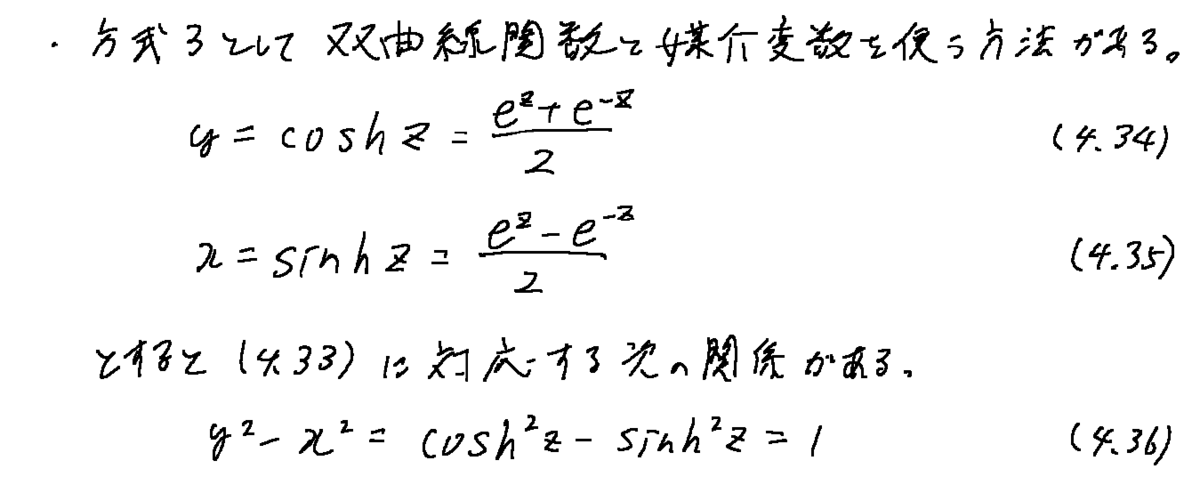 ・方式3として双曲線関数と媒介変数を使う方法がある。
y = cosh z = \frac{e^z + e^{-z}}{2} (4.34)
x = sinh z = \frac{e^z - e^{-z}}{2} (4.35)
とすると (4.33) に対応する次の関係がある。
y^2 - x^2 = cosh^2 z - sinh^2 z = 1 (4.36)